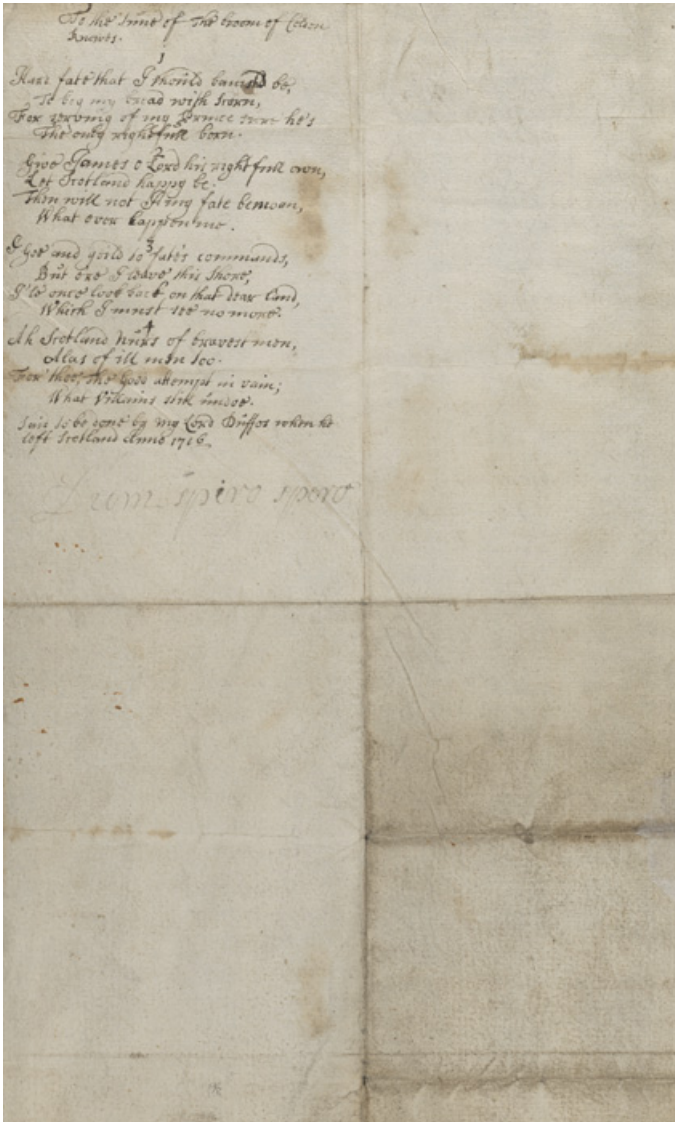 To the tune of the broom of Coden
Knowes.
1
Hard fate that I should banishd be,
To beg my bread with scorn,
For serving of my Prince sure he's
The only rightfull born.
2
Give James o Lord his rightfull own,
Let Scotland happy be.
Then will not I my fate bemoan,
What ever happen me.
3
I goe and yeild to fate's commands,
But ere I leave this shore,
I'le once look back on that dear Land,
Which I must see no more.
4
Ah Scotland Nurs of bravest men,
Alas of ill men too.
For thee, the Good attempt in vain;
What Villains still undoe.
Said to be done by my Lord Duffos when he
left Scotland Anno 1716
Dum spiro spero